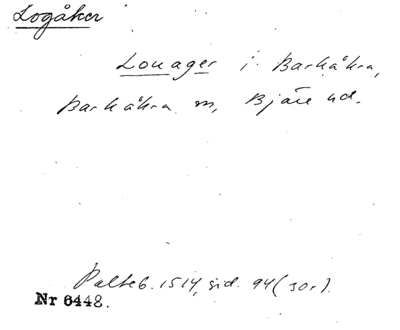 Logåker
Louager i Barkåkra,
Barkåkra sn, Bjäre hd.
Palteb. 1514, sid. 94 (30r).
Nr 6442.